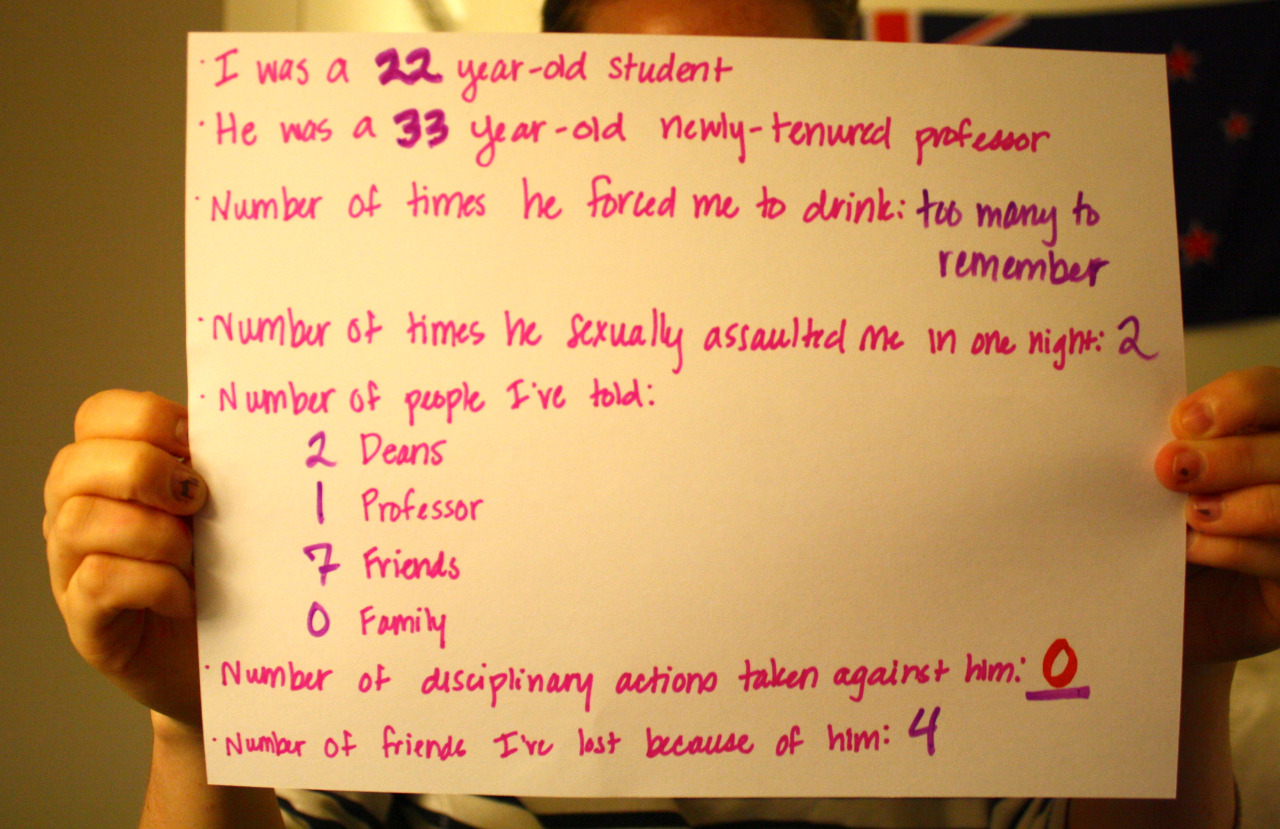 · I was a 22 year-old student
· He was a 33 year-old newly-tenured professor
· Number of times he forced me to drink: too many to
remember
· Number of times he sexually assaulted me in one night: 2
· Number of people I've told:
2 Deans
1 Professor
7 Friends
0 Family
· Number of disciplinary actions taken against him: 0
· Number of friends I've lost because of him: 4